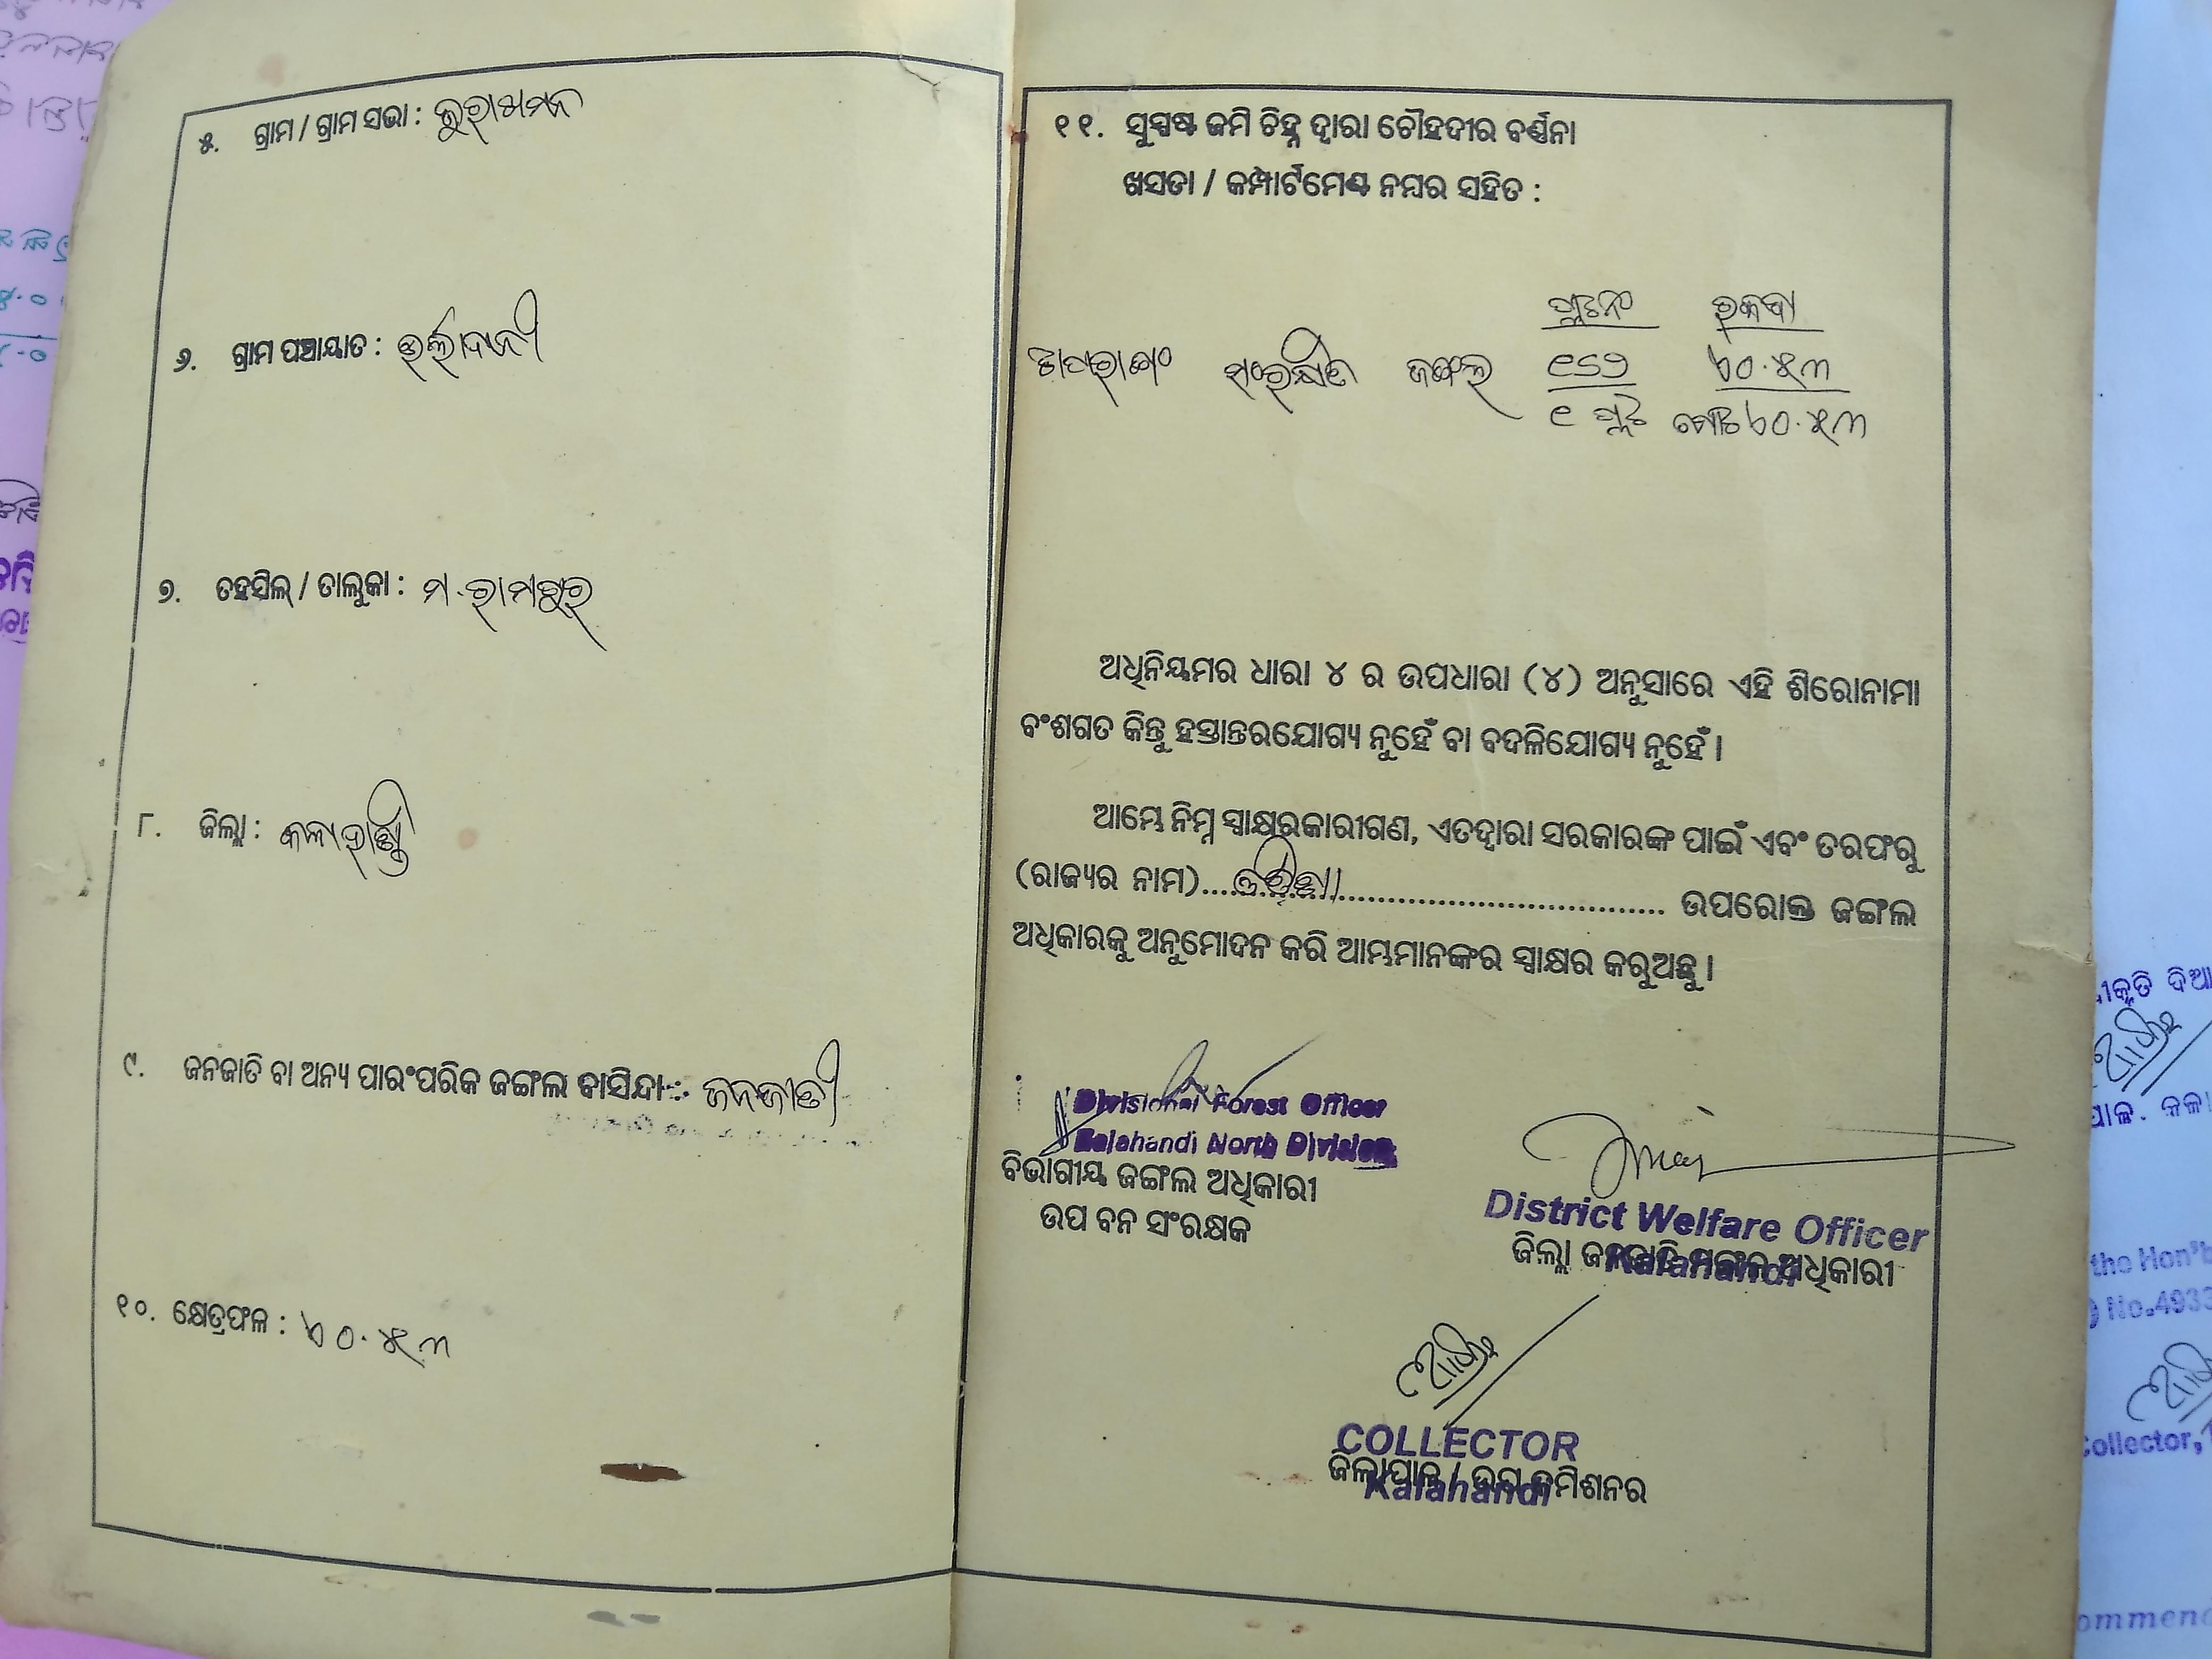 ୫. ଗ୍ରାମ / ଗ୍ରାମ ସଭା : ଭୁରାଖମନ
୬. ଗ୍ରାମ ପଞ୍ଚାୟାତ : ଉର୍ଲାଦାନୀ
୭. ତହସିଲ୍ / ତାଲୁକା : ମ.ରାମପୁର
୮. ଜିଲ୍ଲା : କଳାହାଣ୍ଡୀ
୯. ଜନଜାତି ବା ଅନ୍ୟ ପାରଂପରିକ ଜଙ୍ଗଲ ବାସିନ୍ଦା : ଜନଜାତୀ
୧୦. କ୍ଷେତ୍ରଫଳ : ୬୦.୫୩
୧୧. ସୁସ୍ପଷ୍ଟ ଜମି ଚିହ୍ନ ଦ୍ୱାରା ଚୌହଦୀର ବର୍ଣ୍ଣନା
ଖସଡା / କମ୍ପାର୍ଟମେଣ୍ଟ ନମ୍ବର ସହିତ :
ପ୍ଲଟନଂ ରକବା
ସଂରକ୍ଷିତ ଜଙ୍ଗଲ ୬୦.୫୩
୧ ପ୍ଲଟ ମୋଟ ୬୦.୫୩
ଅଧିନିୟମର ଧାରା ୪ ର ଉପଧାରା (୪) ଅନୁସାରେ ଏହି ଶିରୋନାମା
ବଂଶଗତ କିନ୍ତୁ ହସ୍ତାନ୍ତରଯୋଗ୍ୟ ନୁହେଁ ବା ବଦଳିଯୋଗ୍ୟ ନୁହେଁ।
ଆମ୍ଭେ ନିମ୍ନ ସ୍ୱାକ୍ଷରକାରୀଗଣ, ଏତଦ୍ୱାରା ସରକାରଙ୍କ ପାଇଁ ଏବଂ ତରଫରୁ
(ରାଜ୍ୟର ନାମ)....ଓଡ଼ିଶା.... ଉପରୋକ୍ତ ଜଙ୍ଗଲ
ଅଧିକାରକୁ ଅନୁମୋଦନ କରି ଆମ୍ଭମାନଙ୍କର ସ୍ୱାକ୍ଷର କରୁଅଛୁ।
Divisional Forest Officer
Kalahandi North Division
ବିଭାଗୀୟ ଜଙ୍ଗଲ ଅଧିକାରୀ
ଉପ ବନ ସଂରକ୍ଷକ
District Welfare Officer
Kalahandi
ଜିଲ୍ଲା ଜନଜାତି ମଙ୍ଗଳ ଅଧିକାରୀ
COLLECTOR
Kalahandi
ଜିଲ୍ଲାପାଳ / ଉପ କମିଶନର
the Hon'b
No.4933
Collector,
ommend